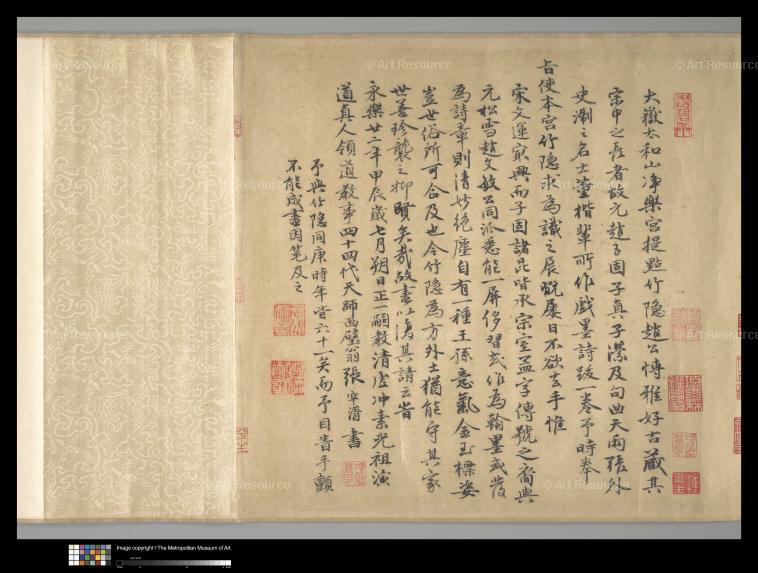 大嶽太和山淨樂宮提點竹隱趙公博雅好古藏其
宗中之長者故元趙子固子真子潔及句曲天雨張外
史淛之名士董楷輩所作戲墨詩跋一卷予時奉
旨使本宮竹隱求為識之展翫屢日不欲去手惟
宋文運最興而子固諸昆皆承宗室孟字傳號之裔與
元松雪趙文敏公同派悉能一屏侈習或作為翰墨或發
為詩章則清妙絕塵自有一種王孫意氣金玉標姿
豈世俗所可企及也今竹隱為方外士猶能守其家
世善珍襲之抑賢矣哉故書以復其請云旹
永樂廿二年甲辰歲七月朔日正一嗣教清虛冲素光祖演
道真人領道教事四十四代天師西壁翁張宇清書
予與竹隱同庚時年皆六十一矣而予目眚手顫
不能成畫因筆及之
Image copyright © The Metropolitan Museum of Art
© Art Resource